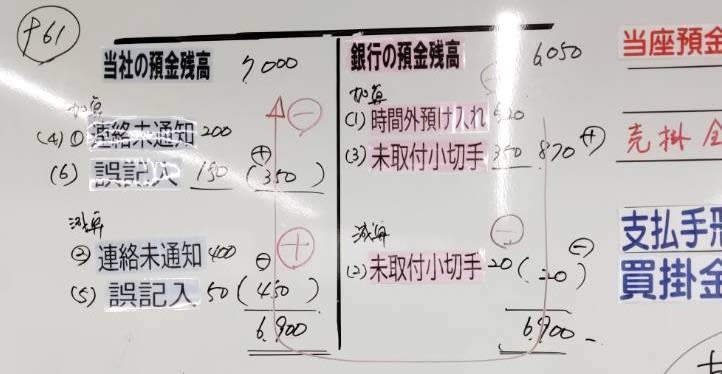 P61
当社の預金残高 7,000
加算
(4)① 連絡未通知 200
(6) 誤記入 150 (350) ⊕
⊖
減算
② 連絡未通知 400 ⊖
(5) 誤記入 50 (450)
⊕
6,900
銀行の預金残高 6,050
加算
(1) 時間外預け入れ 520
(3) 未取付小切手 350 870 ⊕
⊖
減算
(2) 未取付小切手 20 (20) ⊖
6,900
当座預金
売掛金
支払手形
買掛金